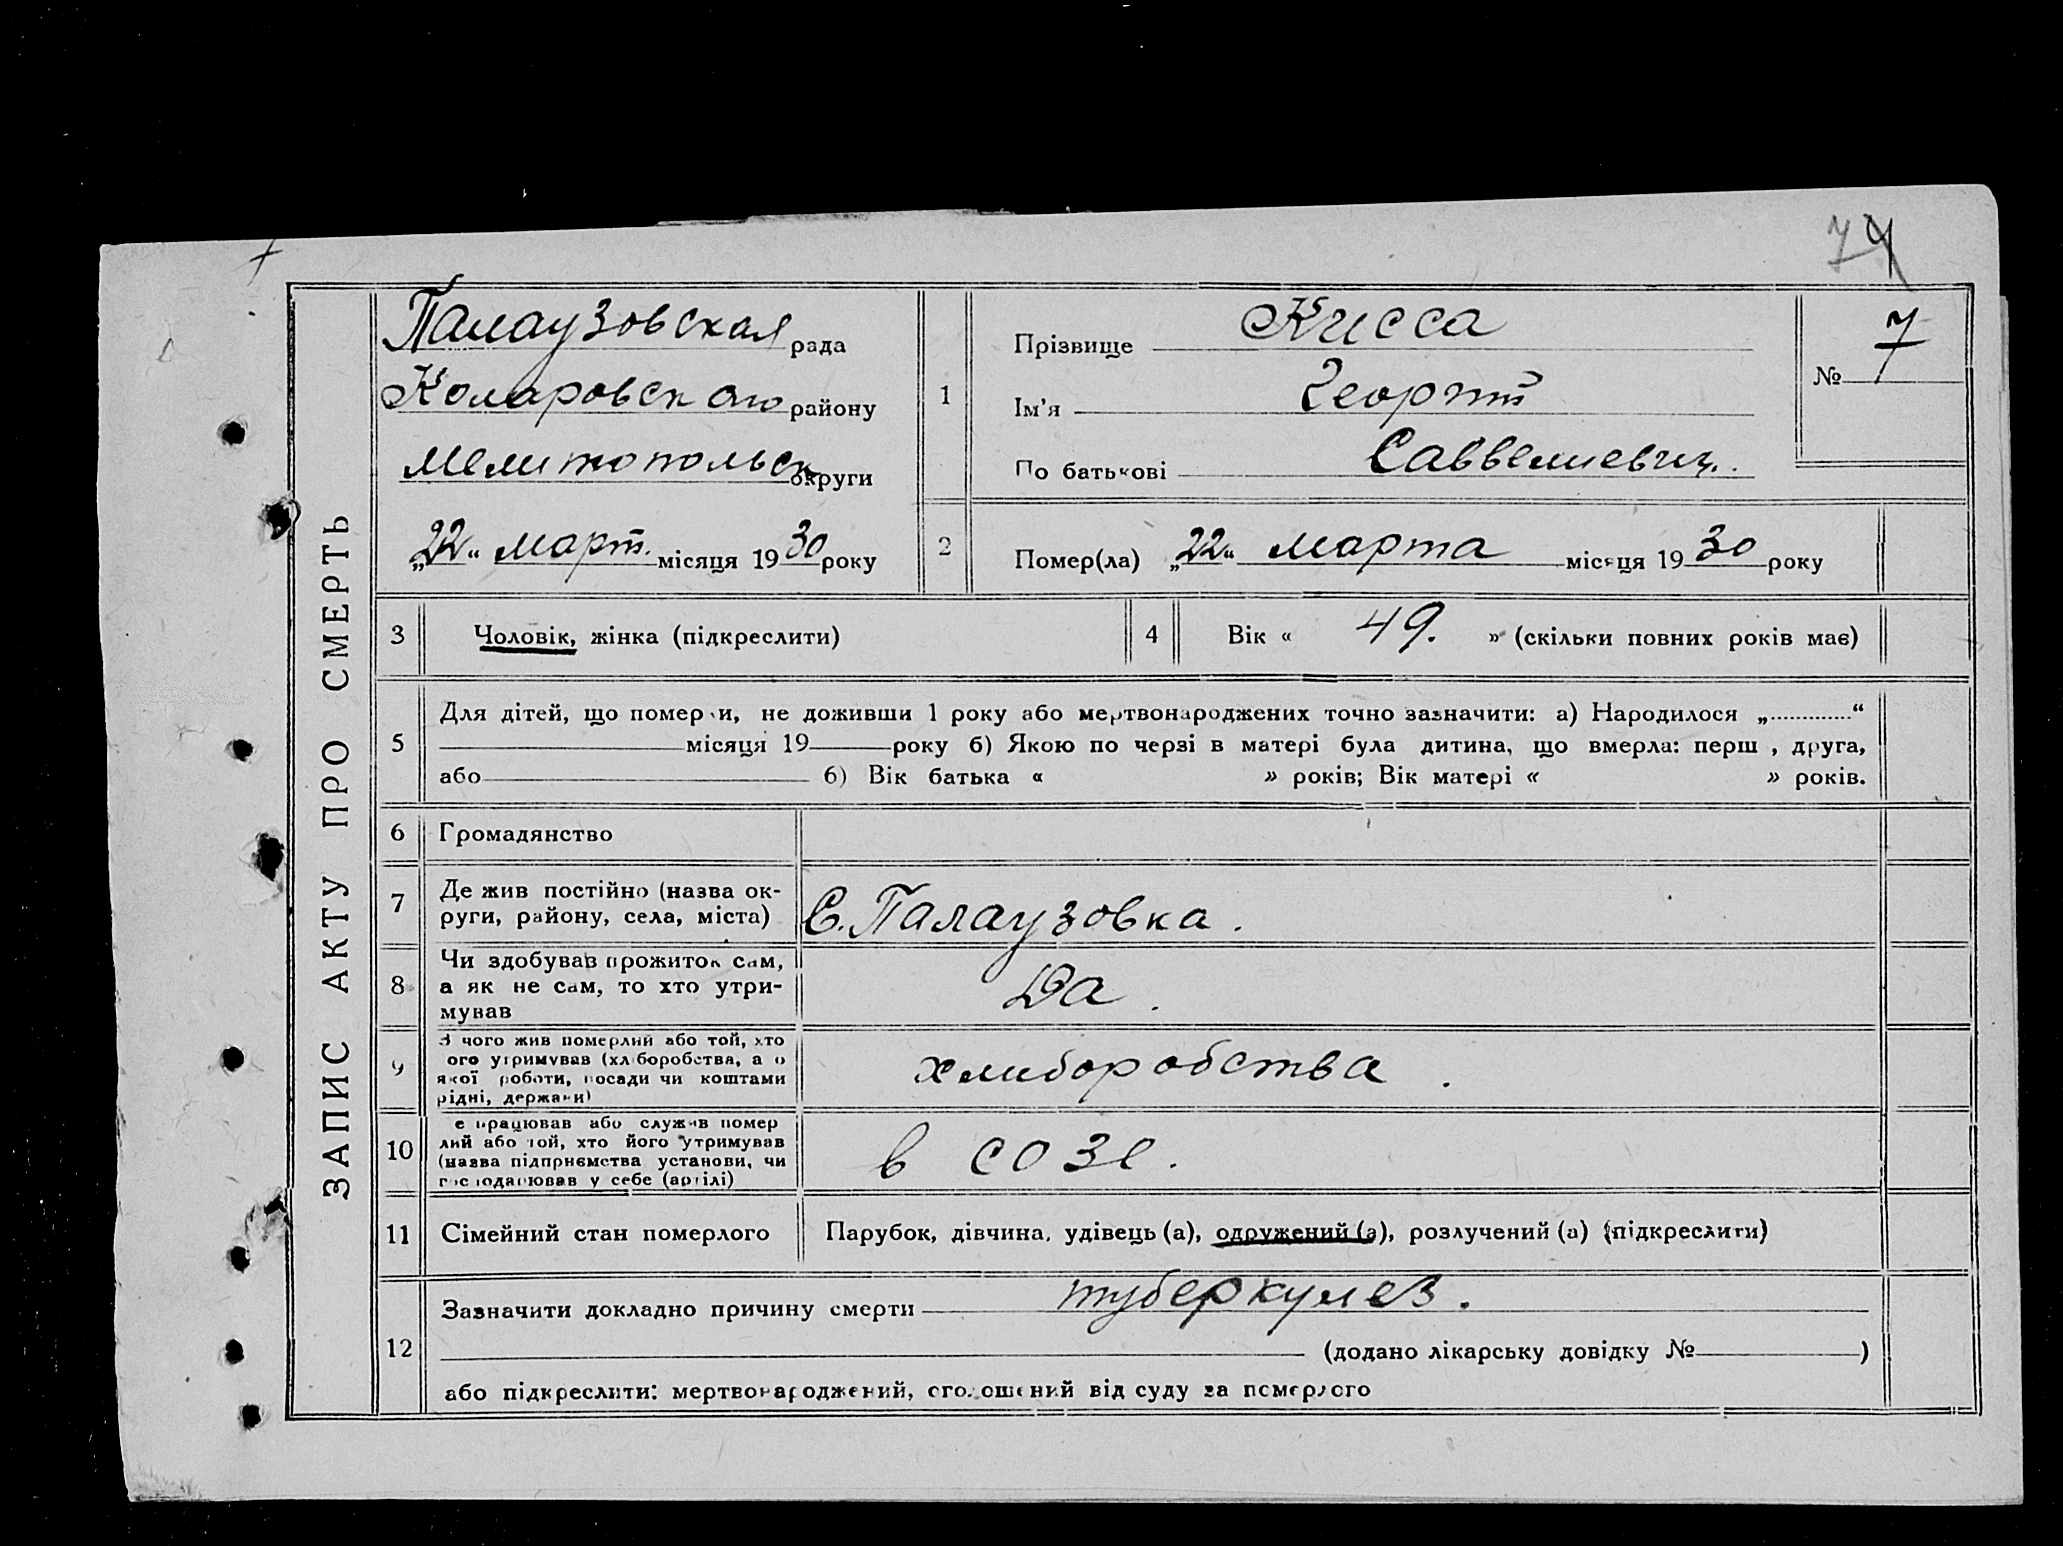 74
ЗАПИС АКТУ ПРО СМЕРТЬ
Палаузовская рада
Коларовского району
Мелитопольск округи
„22“ март. місяця 1930 року
1
Прізвище Кисса
Ім'я Георгий
По батькові Саввелиевич.
№ 7
2
Помер(ла) „22“ марта місяця 1930 року
3 Чоловік, жінка (підкреслити)
4 Вік « 49. » (скільки повних років має)
5
Для дітей, що померли, не доживши 1 року або мертвонароджених точно зазначити: а) Народилося „.............“
місяця 19 року б) Якою по черзі в матері була дитина, що вмерла: перш , друга,
або б) Вік батька « » років; Вік матері « » років.
6 Громадянство
7 Де жив постійно (назва ок-
руги, району, села, міста)
С. Палаузовка.
8 Чи здобував прожиток сам,
а як не сам, то хто утри-
мував
Да.
9 З чого жив померлий або той, хто
ого утримував (хліборобства, а о
якої роботи, посади чи коштами
рідні, держави)
хлиборобства.
10 е працював або служив помер
лий або той, хто його утримував
(назва підприємства установи, чи
господарював у себе (артілі)
в созе.
11 Сімейний стан померлого
Парубок, дівчина, удівець (а), одружений (а), розлучений (а) (підкреслити)
12
Зазначити докладно причину смерти туберкулез.
(додано лікарську довідку № )
або підкреслити: мертвонароджений, оголошений від суду за померлого